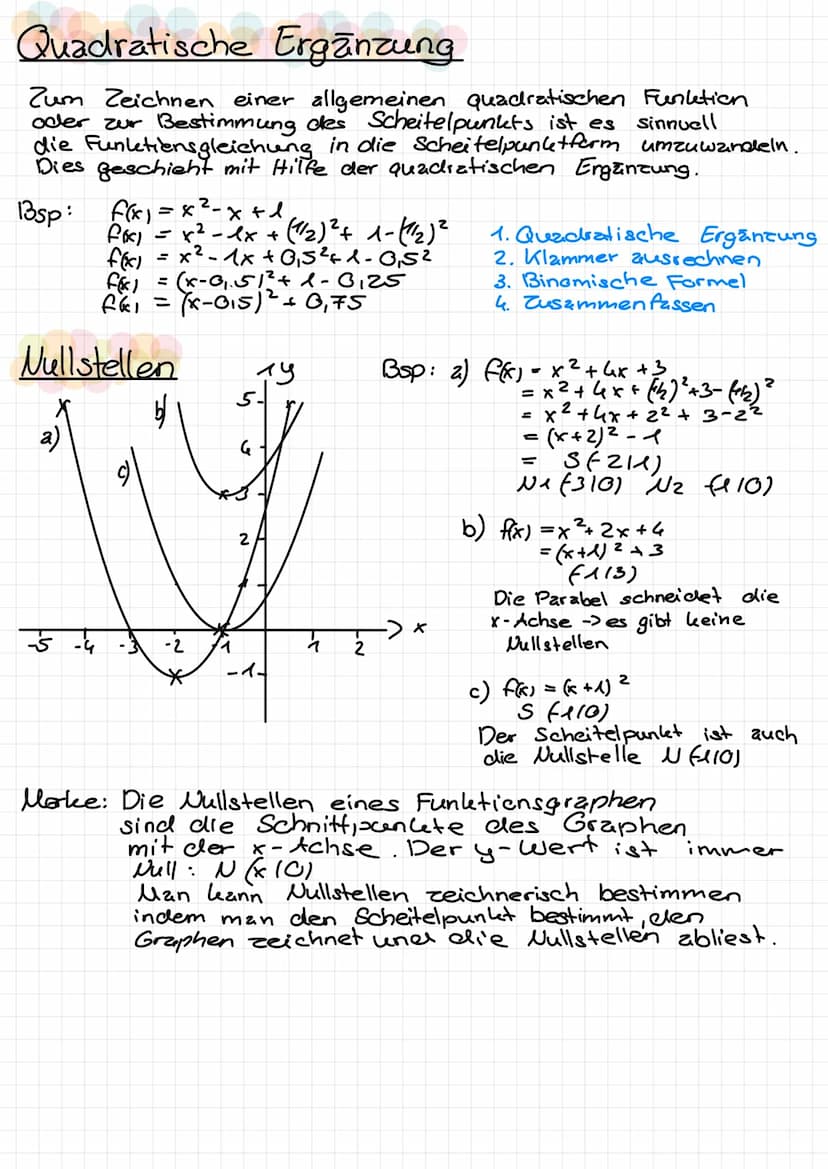 Quadratische Ergänzung
Zum Zeichnen einer allgemeinen quadratischen Funktion
oder zur Bestimmung des Scheitelpunkts ist es sinnvoll
die Funktionsgleichung in die Scheitelpunktform umzuwandeln.
Dies geschieht mit Hilfe der quadratischen Ergänzung.
Bsp: f(x) = x² - x + 1
f(x) = x² - 1x + (1/2)² + 1 - (1/2)²
f(x) = x² - 1x + 0,5² + 1 - 0,5²
f(x) = (x-0,5)² + 1 - 0,25
f(x) = (x-0,5)² + 0,75
1. Quadratische Ergänzung
2. Klammer ausrechnen
3. Binomische Formel
4. Zusammenfassen
Nullstellen
y
5
4
3
2
-1
a)
b)
c)
-5 -4 -3 -2 -1 1 2 x
Bsp: a) f(x) = x² + 4x + 3
= x² + 4x + (4/2)² + 3 - (4/2)²
= x² + 4x + 2² + 3 - 2²
= (x+2)² - 1
= S(-2|1)
N1 (-3|0) N2 (-1|0)
b) f(x) = x² + 2x + 4
= (x+1)² + 3
(-1|3)
Die Parabel schneidet die
x-Achse -> es gibt keine
Nullstellen
c) f(x) = (x+1)²
S (-1|0)
Der Scheitelpunkt ist auch
die Nullstelle N (-1|0)
Merke: Die Nullstellen eines Funktionsgraphen
sind die Schnittpunkte des Graphen
mit der x-Achse. Der y-Wert ist immer
Null: N (x|0)
Man kann Nullstellen zeichnerisch bestimmen
indem man den Scheitelpunkt bestimmt, den
Graphen zeichnet und die Nullstellen abliest.